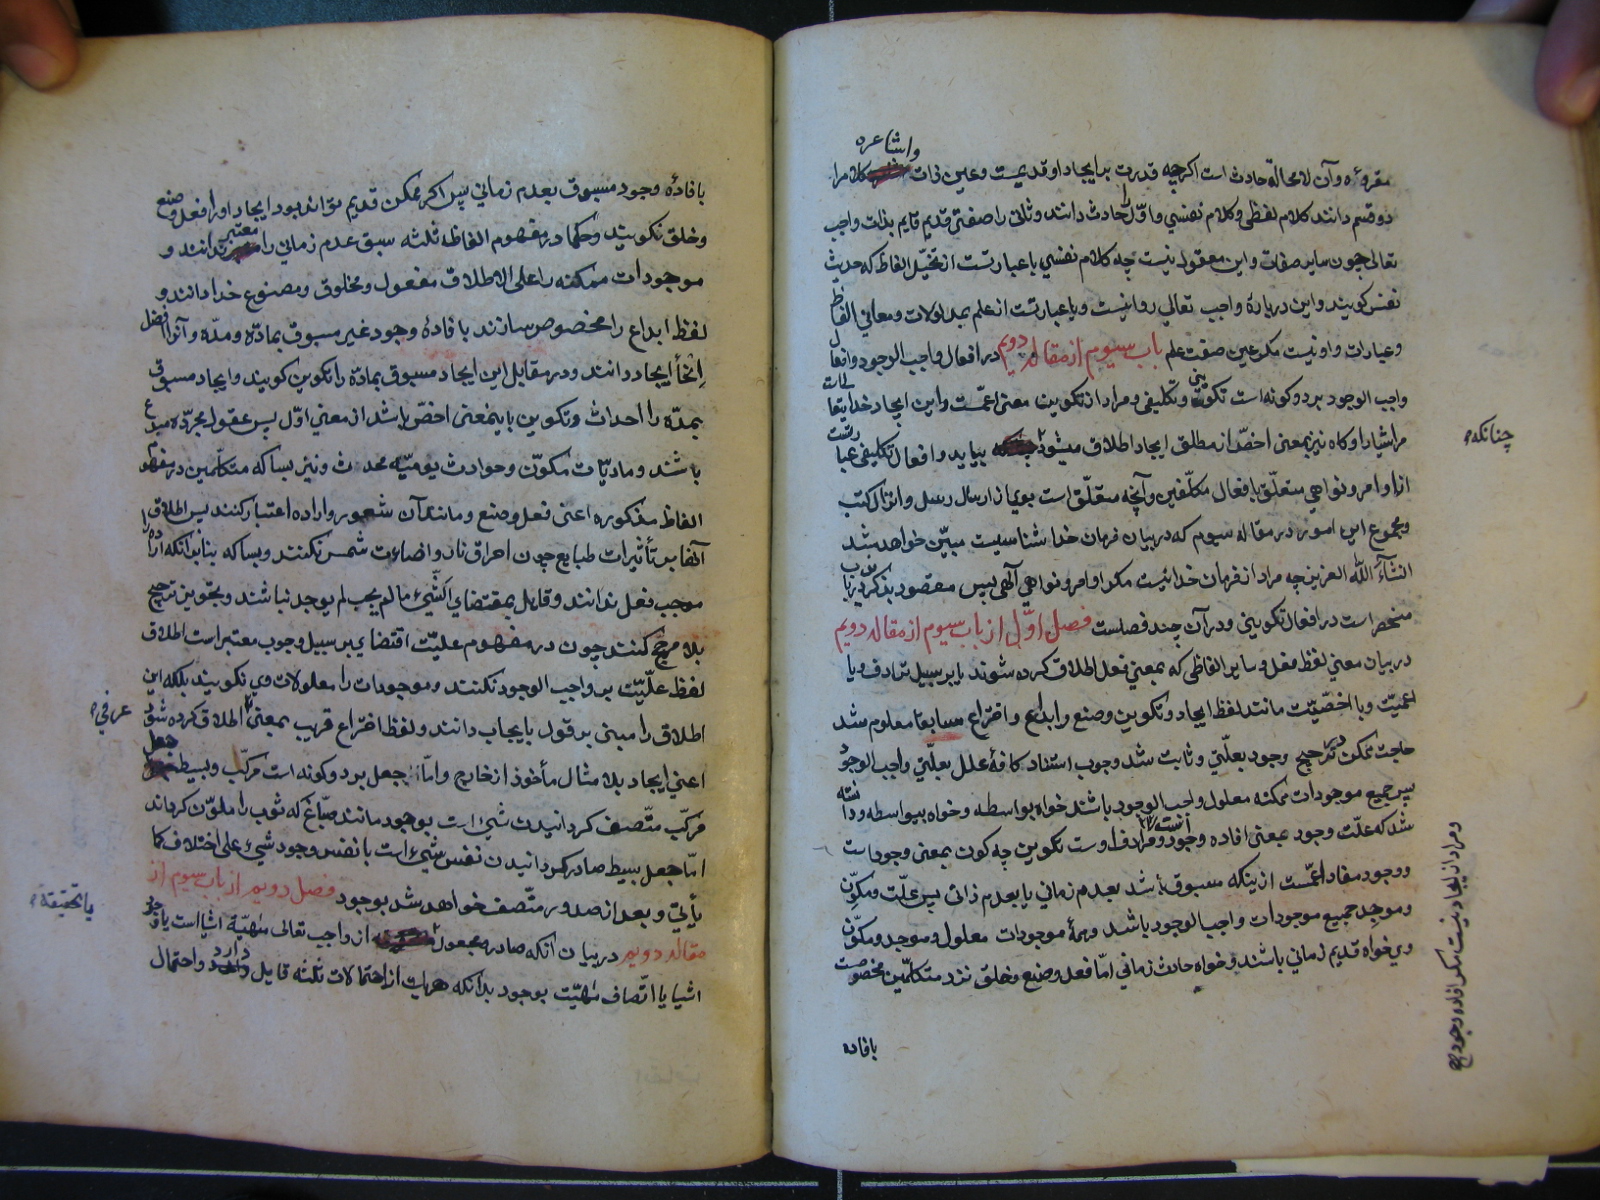 واشاعره
مقروءه و آن لامحالة حادث است اکرچه قدرت بر ایجاد او قدیمست و عین ذات کلام را
دو قسم دانند کلام لفظی و کلام نفسی و اوّل را حادث دانند و ثانی را صفتی قدیم قایم بذات واجب
تعالی چون سایر صفات و این معقول نیست چه کلام نفسی یا عبارتست از تخیّل الفاظ که حدیث
نفس کویند و این در بارهٔ واجب تعالی روا نیست و یا عبارتست از علم بمدلولات و معانی الفاظ
و عبارات و او نیست مکر عین صفت علم باب سیوم از مقاله دویم در افعال واجب الوجود و افعال
واجب الوجود بر دو کونه است تکوینی و تکلیفی و مراد از تکوین معنی اعمّست و این ایجاد خدایتعا
مر اشیا را و کاه نیز بمعنی اخصّ از مطلق ایجاد اطلاق میشود چنانکه بیاید و افعال تکلیفی عبارتست
از اوامر و نواهی متعلّق بافعال مکلّفین و آنچه متعلّق است بوی از ارسال رسل و انزال کتب
و مجموع این امور در مقاله سیوم که در بیان فرمان خدا شناسیست مبیّن خواهد شد
انشاءالله العزیز چه مراد از فرمان خدا نیست مکر اوامر و نواهی آلهی پس مقصود بذکر درین باب
منحصر است در افعال تکوینی و در آن چند فصلست فصل اوّل از باب سیوم از مقاله دویم
در بیان معنی لفظ فعل و سایر الفاظی که بمعنی فعل اطلاق کرده شوند یا بر سبیل ترادف و یا
اعمیّت و یا اخصّیّت مانند لفظ ایجاد و تکوین و صنع و ابداع و اختراع سابقا معلوم شد
حاجت ممکن در ترجیح وجود بعلّتی و ثابت شد وجوب استناد کافهٔ علل بعلّتی واجب الوجود
پس جمیع موجودات ممکنه معلول واجب الوجود باشند خواه بواسطه و خواه بیواسطه و دانسته
شد که علّت وجود بمعنی افاده وجود و مرادف اوست تکوین چه کون بمعنی وجود است
و وجود مفاد اعمّست از ینکه مسبوق باشد بعدم زمانی یا بعدم ذاتی پس علّت و مکوّن
و موجد جمیع موجودات واجب الوجود باشد و همهٔ موجودات معلول و موجد و مکوّن
وی خواه قدیم زمانی باشند و خواه حادث زمانی امّا فعل و صنع و خلق نزد متکلّمین مخصوصست
بافاده
چنانکه
و مراد از ایجاد نیست مکر افاده وجود
بافادهٔ وجود مسبوق بعدم زمانی پس اکر ممکن قدیم تواند بود ایجاد او را فعل و صنع
و خلق نکویند و حکما در مفهوم الفاظ ثلثه سبق عدم زمانی را معتبر ندانند و
موجودات ممکنه را علی الاطلاق مفعول و مخلوق و مصنوع خدا دانند و
لفظ ابداع را مخصوص سازند بافادهٔ وجود غیر مسبوق بمادّه و مدّه و آنرا افضل
انحأ ایجاد دانند و در مقابل این ایجاد مسبوق بمادّه را تکوین کویند و ایجاد مسبوق
بمدّه را احداث و تکوین باینمعنی اخصّ باشد از معنی اوّل پس عقول مجرّده مبدع
باشند و مادیّات مکوّن و حوادث یومیّه محدث و نیز بسا که متکلّمین در مفهوم
الفاظ مذکوره اعنی فعل و صنع و مانند آن شعور و اراده اعتبار کنند پس اطلاق
آنها بر تأثیرات طبایع چون احراق نار و اضاءت شمس نکنند و بسا که بنابر آنکه اراده را
موجب فعل ندانند و قایل بمقتضای الشّیء ما لم یجب لم یوجد نباشند و تجویز ترجیح
بلا مرجّح کنند چون در مفهوم علیّت اقتضای بر سبیل وجوب معتبر است اطلاق
لفظ علّیّت بر واجب الوجود نکنند و موجودات را معلولات وی نکویند بلکه این
اطلاق را مبنی بر قول بایجاب دانند و لفظ اختراع قریب بمعنی اطلاق کرده شود
اعنی ایجاد بلا مثال مأخوذ از خارج و امّا جعل بر دو کونه است مرکّب و بسیط جعل
مرکّب متّصف کردانیدن شیء است بوجود مانند صبّاغ که ثوب را ملوّن کرداند
امّا جعل بسیط صادر کردانیدن نفس شیء است یا نفس وجود شیء علی اختلاف کما
یأتی و بعد از صدور متّصف خواهد شد بوجود فصل دویم از باب سیوم از
مقاله دویم در بیان آنکه صادر و مجعول از واجب تعالی مهیّة اشیا است یا وجود
اشیا یا اتّصاف مهیّت بوجود بدانکه هریک از احتمالات ثلثه قایل دارد و احتمال
عرفی
یا تحقیقة